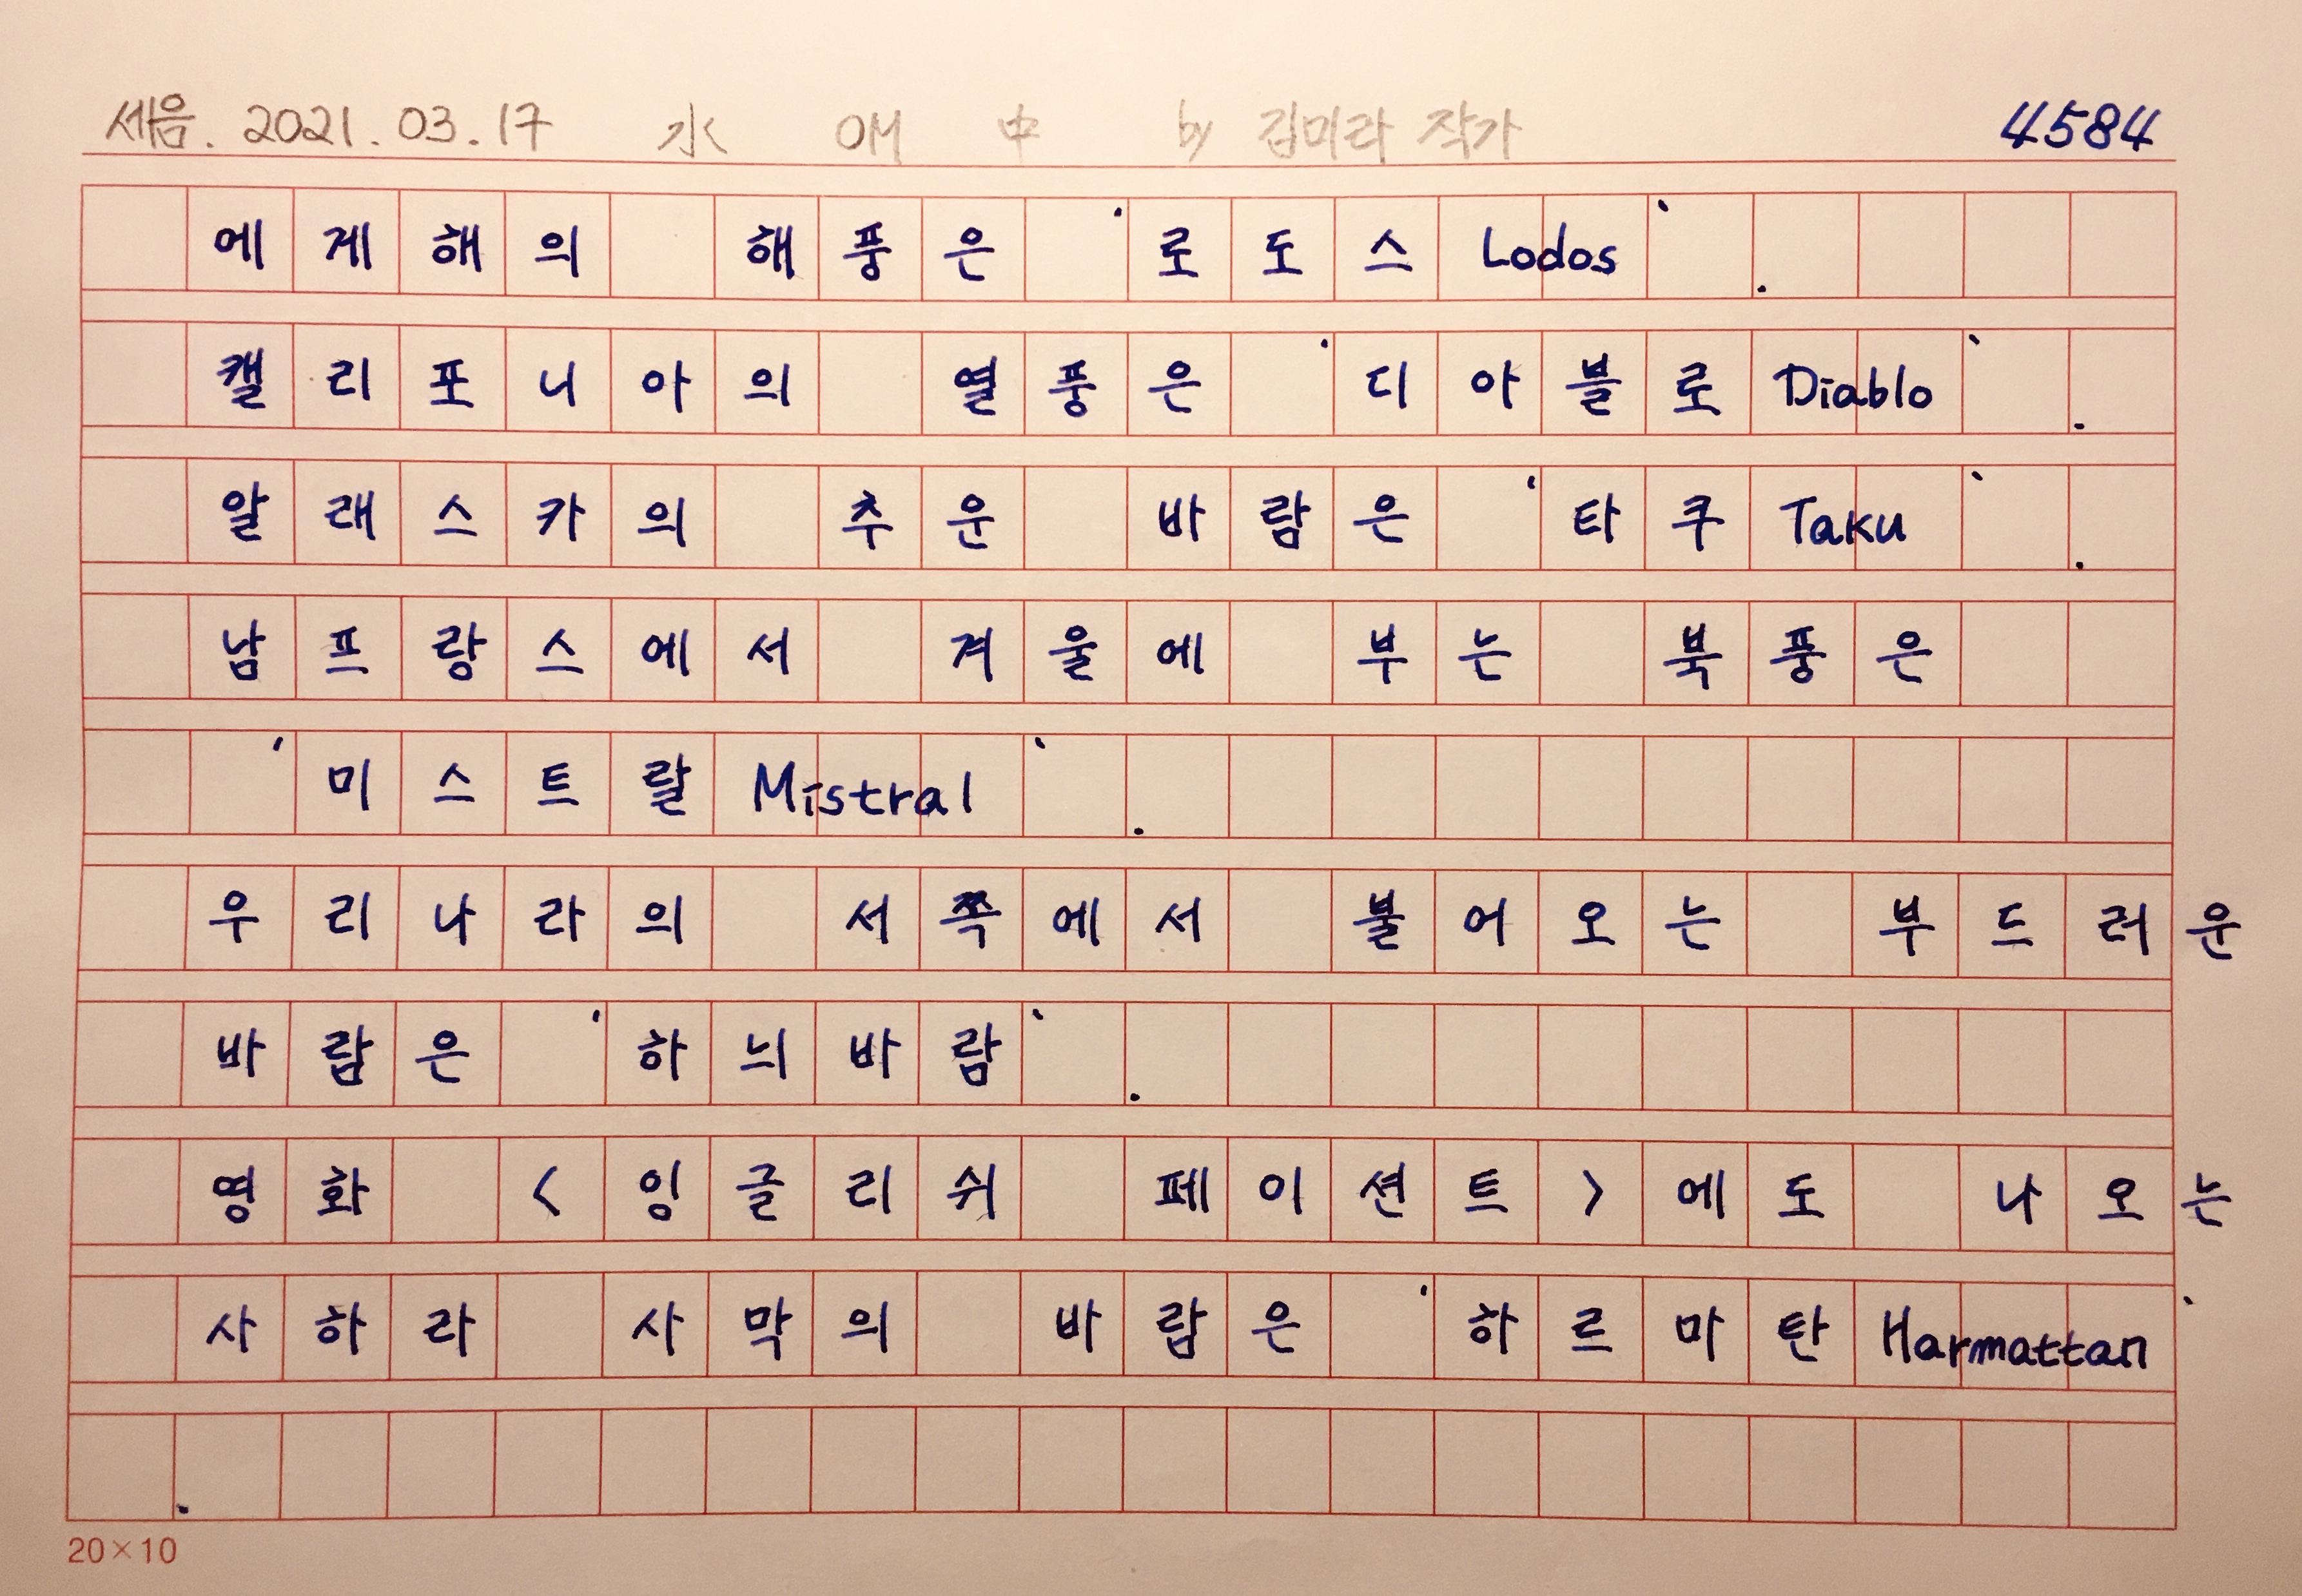 세음. 2021. 03. 17 水 OM 中 by 김미라 작가 4584
에게해의 해풍은 '로도스 Lodos'.
캘리포니아의 열풍은 '디아블로 Diablo'.
알래스카의 추운 바람은 '타쿠 Taku'.
남프랑스에서 겨울에 부는 북풍은
'미스트랄 Mistral'.
우리나라의 서쪽에서 불어오는 부드러운
바람은 '하늬바람'.
영화 <잉글리쉬 페이션트>에도 나오는
사하라 사막의 바람은 '하르마탄 Harmattan'
.
20×10